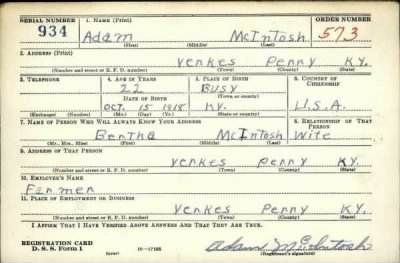 SERIAL NUMBER
1. NAME (Print)
ORDER NUMBER
934
Adam McIntosh
573
(First) (Middle) (Last)
2. ADDRESS (Print)
Yerkes Perry KY.
(Number and street or R. F. D. number) (Town) (County) (State)
3. TELEPHONE
4. AGE IN YEARS
5. PLACE OF BIRTH
6. COUNTRY OF CITIZENSHIP
22
BUSY
DATE OF BIRTH
(Town or county)
Oct. 15 1918
Ky.
U.S.A.
(Exchange) (Number) (Mo.) (Day) (Yr.) (State or country)
7. NAME OF PERSON WHO WILL ALWAYS KNOW YOUR ADDRESS
8. RELATIONSHIP OF THAT PERSON
Bertha McIntosh Wife
(Mr., Mrs., Miss) (First) (Middle) (Last)
9. ADDRESS OF THAT PERSON
Yerkes Perry KY
(Number and street or R. F. D. number) (Town) (County) (State)
10. EMPLOYER'S NAME
Farmer
11. PLACE OF EMPLOYMENT OR BUSINESS
Yerkes Perry KY.
(Number and street or R. F. D. number) (Town) (County) (State)
I AFFIRM THAT I HAVE VERIFIED ABOVE ANSWERS AND THAT THEY ARE TRUE.
REGISTRATION CARD
D. S. S. Form 1
(over)
16—17105
Adam McIntosh
(Registrant's signature)